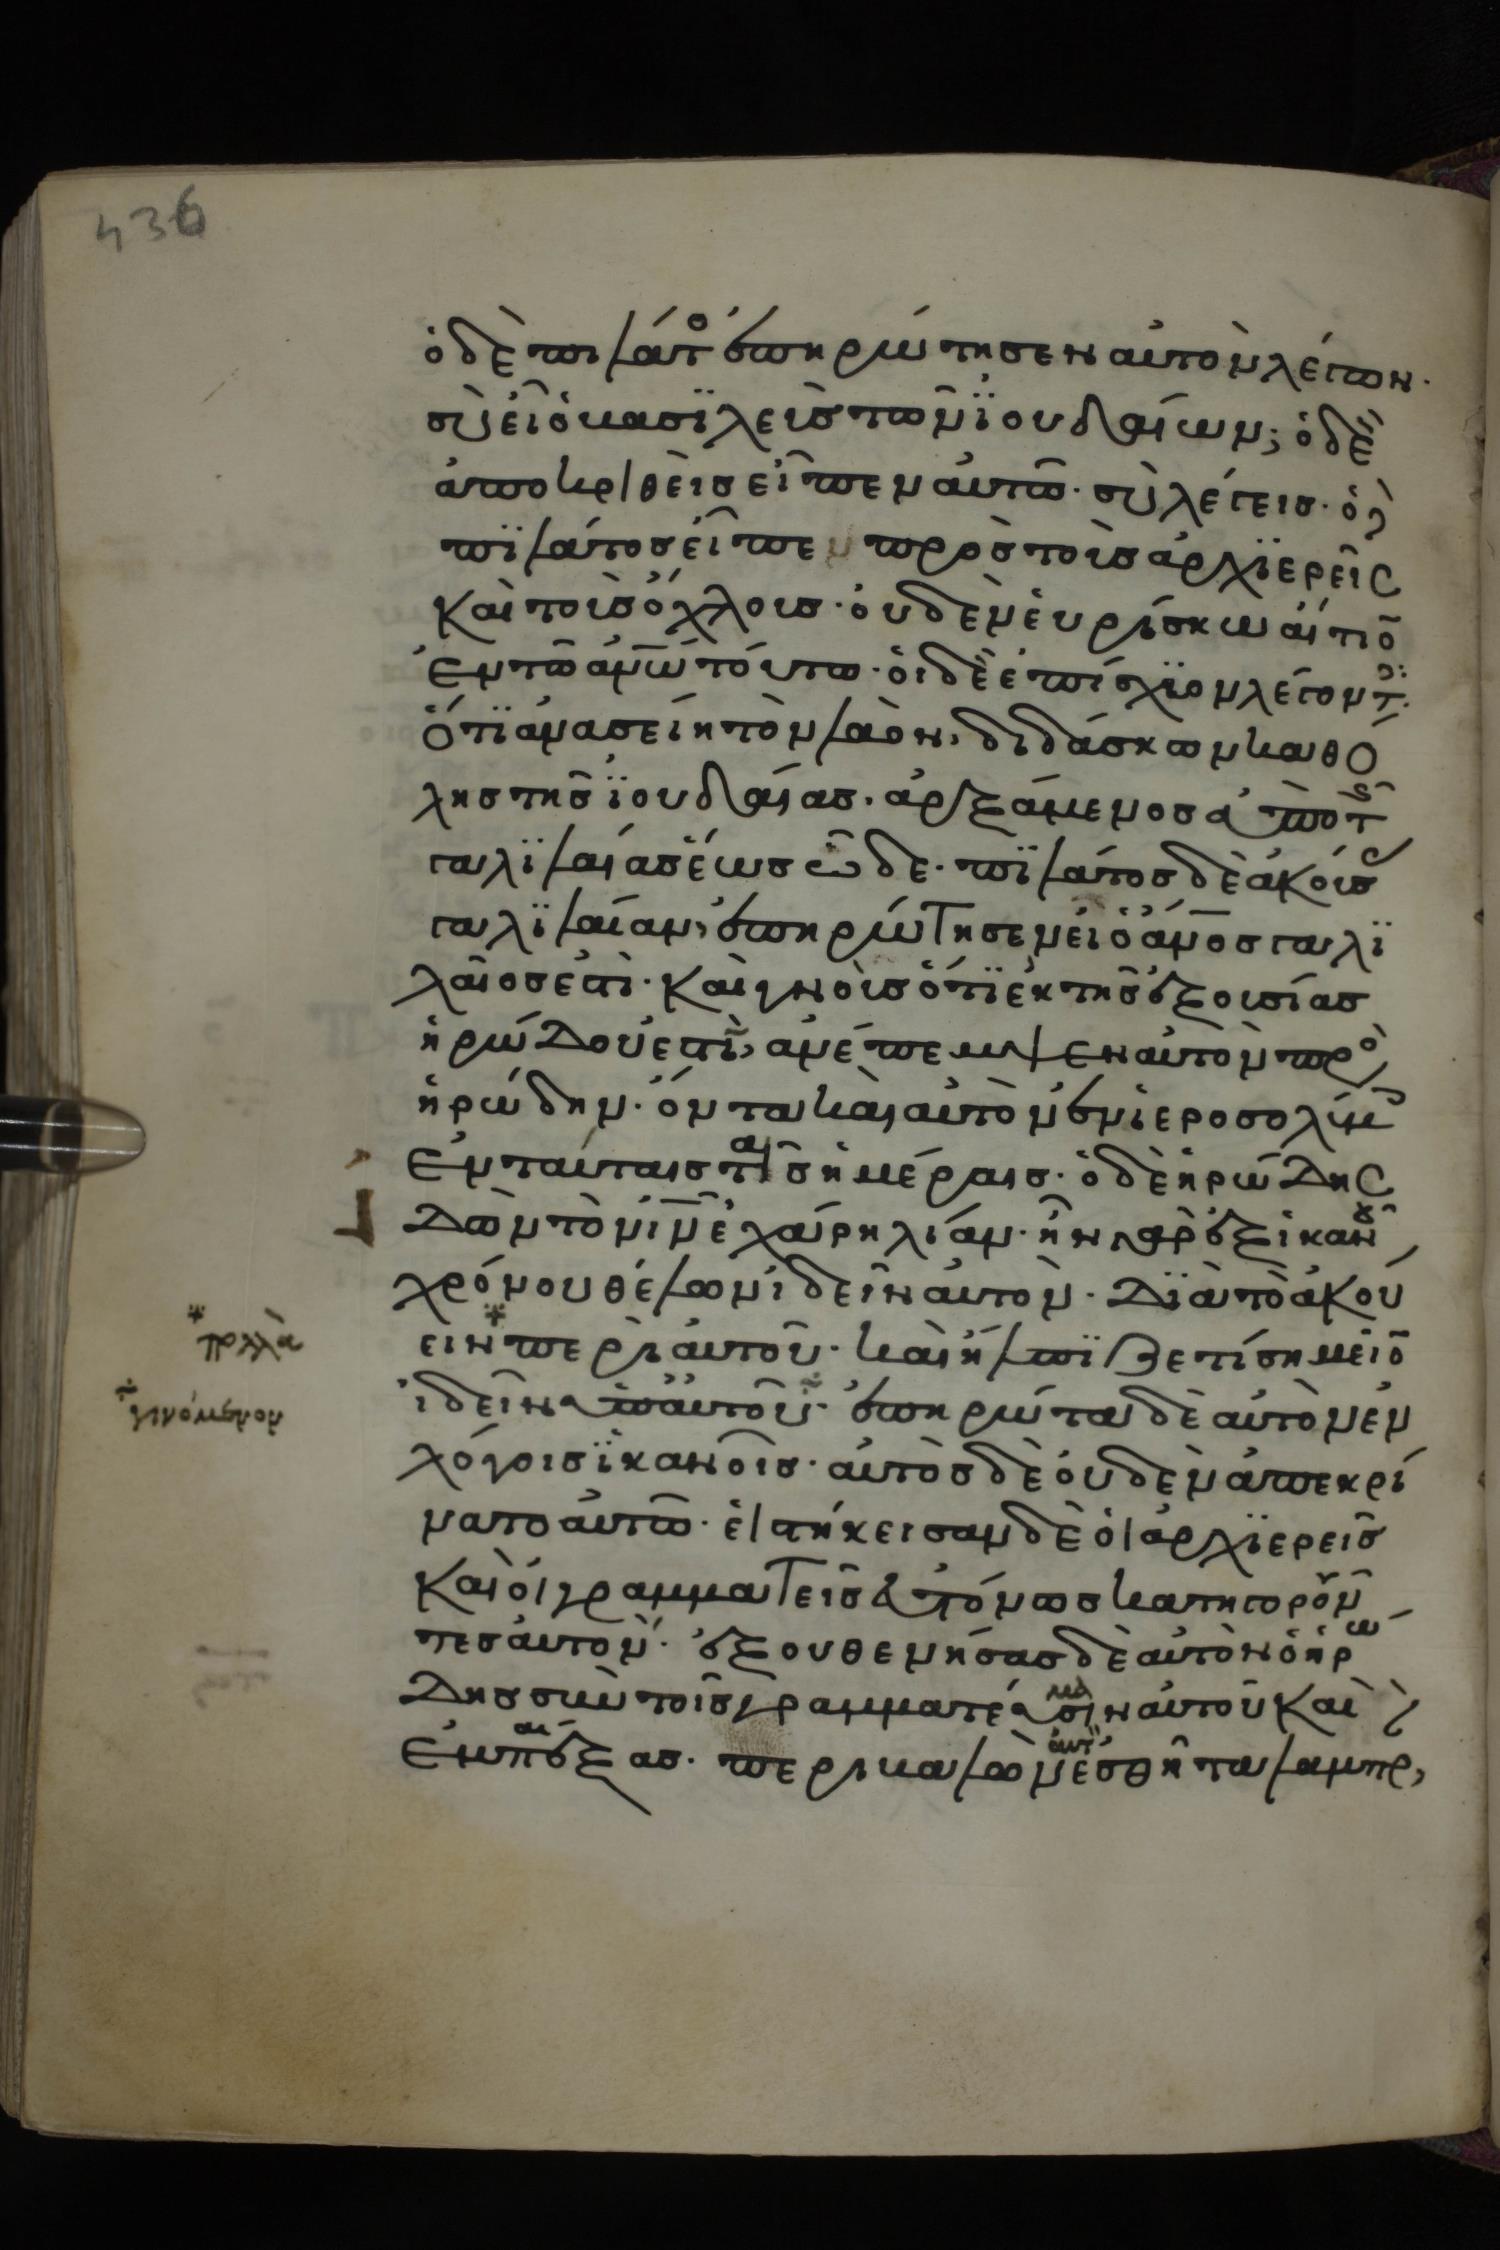 436
ὁ δὲ πιλάτος ἐπηρώτησεν αὐτὸν λέγων·
σὺ εἶ ὁ βασϊλεὺς τῶν ϊουδαίων; ὁ δὲ
ἀποκριθεὶς εἶπεν αὐτῶ· σὺ λέγεις· ὁ δὲ
πϊλάτος εἶπεν πρὸς τοὺς ἀρχϊερεῖς
καὶ τοὺς ὄχλους· οὐδὲν εὑρίσκω αἴτιον
ἐν τῶ ἀνω τούτω· οἱ δὲ ἐπίσχϊον λέγοντες·
ὅτϊ ἀνασείη τὸν λαὸν, διδάσκων καθ' ὅ
λης τῆς ϊουδαίας· ἀρξάμενος ἀπὸ τῆς
γαλϊλαίας ἕως ὧδε· πϊλάτος δὲ ἀκούσας
γαλϊλαίαν, ἐπηρώτησεν εἰ ὁ ἀνος γαλϊ
λαῖος ἐστὶ· καὶ γνοὺς ὅτϊ ἐκ τῆς ἐξουσίας
ἡρώδου ἐστὶν, ἀνέπεμψεν αὐτὸν πρὸς
ἡρώδην· ὄντα καὶ αὐτὸν ἐν ἱεροσολύμοις
ἐν ταύταις ταῖς ἡμέραις· ὁ δὲ ἡρώδης
ἰδὼν τὸν ιν ἐχάρη λίαν· ἦν γὰρ ἐξ ἱκανοῦ
χρόνου θέλων ἰδεῖν αὐτὸν· διὰ τὸ ἀκού
ειν * περὶ αὐτοῦ· καὶ ἤλπϊζε τί σημεῖον
ἰδεῖν ὑπ' αὐτοῦ· ἐπηρώτα δὲ αὐτὸν ἐν
λόγοις ϊκανοῖς· αὐτὸς δὲ οὐδὲν ἀπεκρί
νατο αὐτῶ· εἱστήκεισαν δὲ οἱ ἀρχϊερεῖς
καὶ οἱ γραμματεῖς εὐτόνως κατηγοροῦν
τες αὐτοῦ· ἐξουθενήσας δὲ αὐτὸν ὁ ἡρώ
δης σὺν τοῖς στρατεύμασιν αὐτοῦ καὶ
ἐμπαίξας· περιβαλὼν αὐτὸν ἐσθῆτα λαμπρὰν,
* πολλὰ
γινόμενον